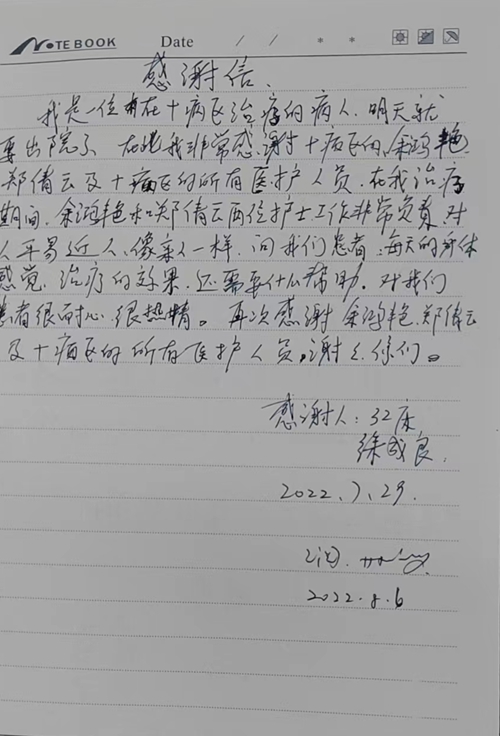 NOTEBOOK Date / /
感谢信.
我是一位有在十病区治疗的病人.明天就
要出院了.在此我非常感谢十病区的.余鸿艳
郑倩云及十病区的所有医护人员.在我治疗
期间.余鸿艳和郑倩云两位护士工作非常负责.对
人平易近人.像亲人一样.问我们患者.每天的身体
感觉.治疗的效果.还需要什么帮助.对我们
患者很耐心.很热情。再次感谢余鸿艳.郑倩云
及十病区的所有医护人员.谢谢你们。
感谢人:32床
徐成良.
2022.7.29.
2022.8.6